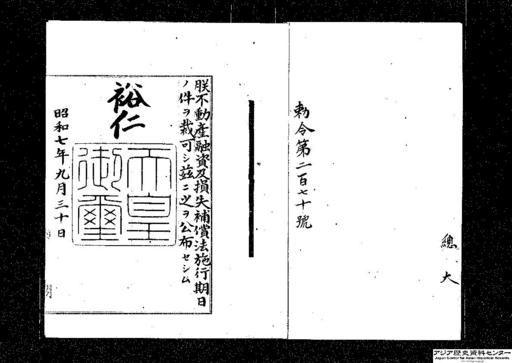 總
大
勅令第二百七十號
朕不動産融資及損失補償法施行期日
ノ件ヲ裁可シ茲ニ之ヲ公布セシム
裕仁
天皇御璽
昭和七年九月三十日
アジア歴史資料センター
Japan Center for Asian Historical Records